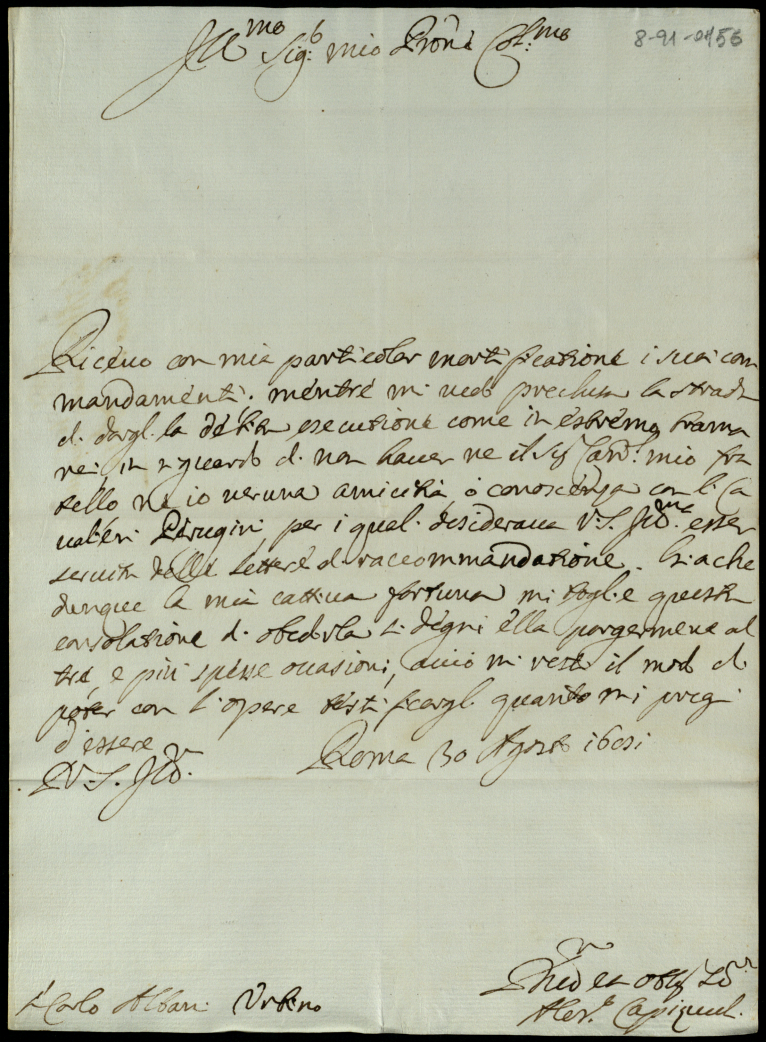 8-91-0156
Ill:mo Sig:r mio Prōne Col:mo
Riceuo con mia particolar mortificatione i suoi com
mandamenti. mentre mi uedo preclusa la strada
di dargli la debita esecutione come in estremo brama
rei, in riguardo di non hauer ne il Sig Card.l mio fra
tello ne io ueruna amicitia, ò conoscenza con li Ca
ualieri Perugini per i quali desideraua V.S. Ill.ma esser
seruita delle lettere di raccommandatione. Giache
dunque la mia cattiua fortuna mi toglie questa
consolatione di obedirla si degni ella porgermene al
tre e più spesse occasioni, acciò mi resti il modo di
poter con l'opere testificargli quanto mi pregi
d'essere
D V.S. Ill.
Roma 30 Agosto
Carlo Albani Urbino